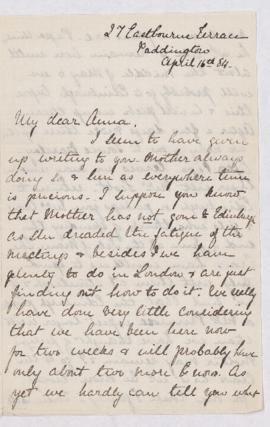 27 Eastbourne Terrace
Paddington
April 16th 84.
My dear Anna.
I seem to have given
up writing to you Mother always
doing so & here as everywhere time
is precious. I suppose you know
that Mother has not gone to Edinburgh
as she dreaded the fatigue of the
meetings & besides we have
plenty to do in London & are just
finding out how to do it. We really
have done very little considering
that we have been here now
for two weeks & will probably have
only about two more now. As
yet we hardly can tell you what